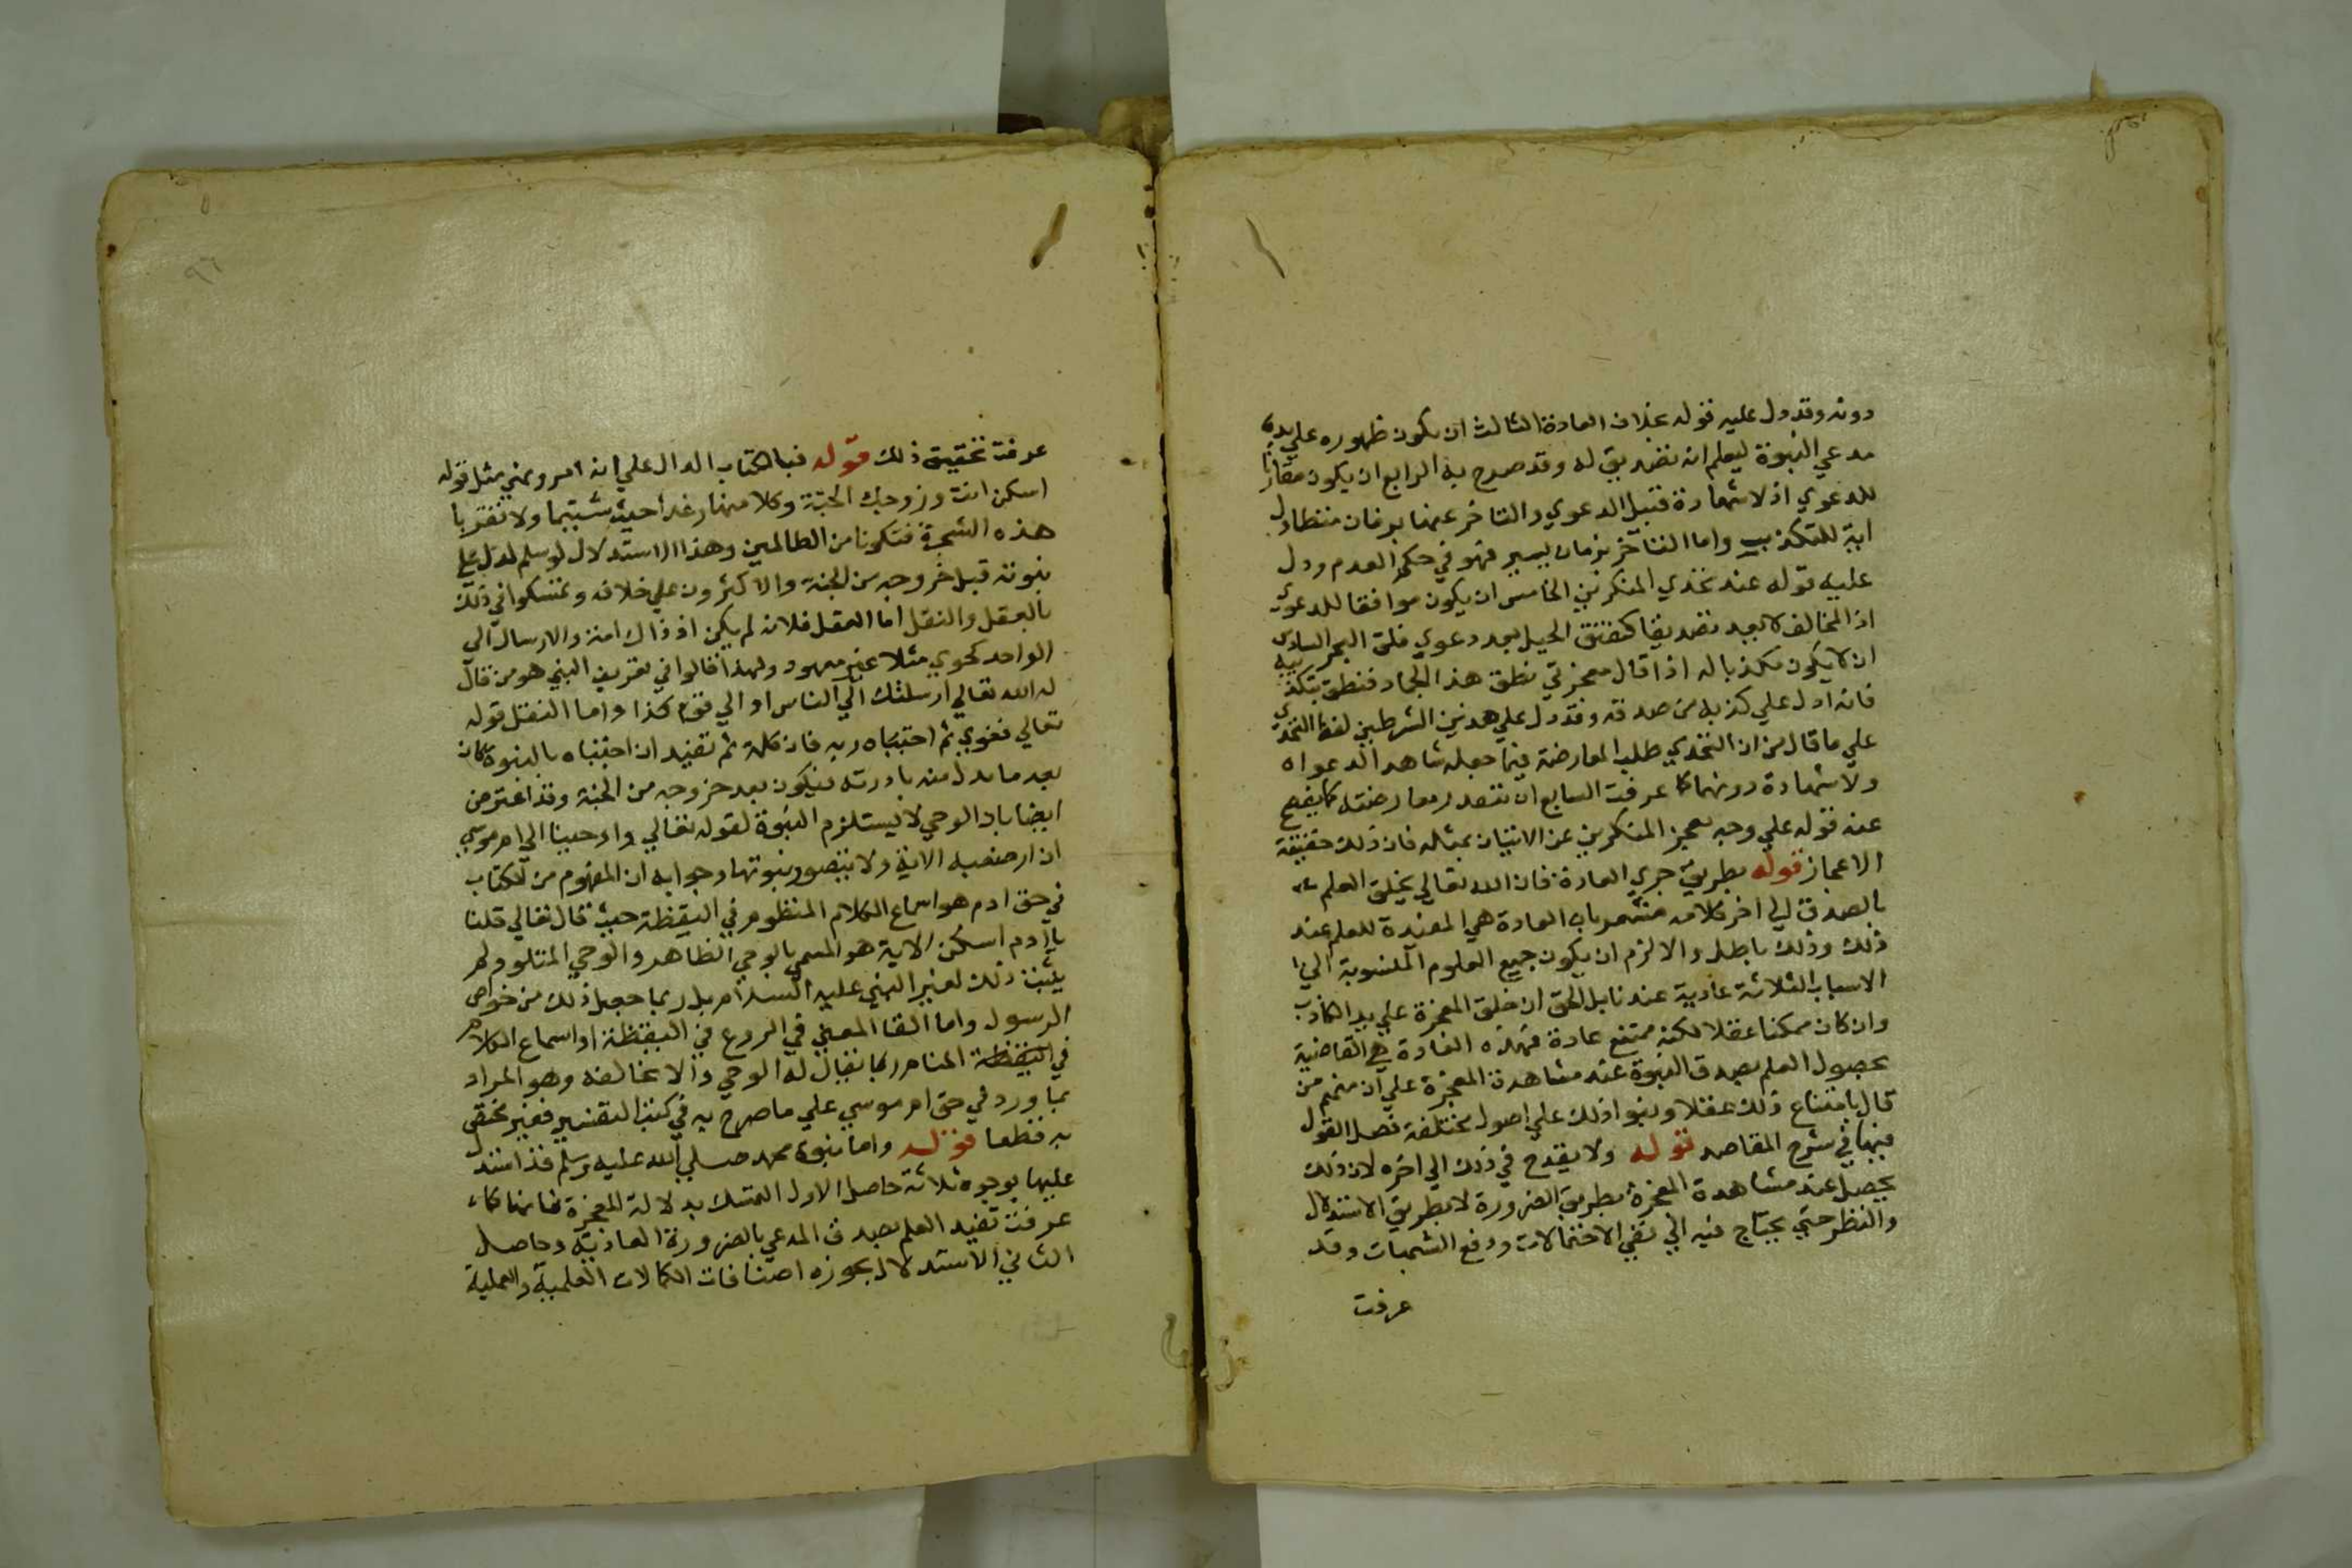 دونه وقد دل عليه قوله بخلاف العادة الثالث ان يكون ظهوره علي يد
مدعي النبوة ليعلم انه تصديق له وقد صرح به الرابع ان يكون مقارنا
للدعوي اذ لا شهادة قبل الدعوي والتاخر عنها بزمان متطاول
اية للتكذيب واما التاخر بزمان يسير فهو في حكم العدم ودل
عليه قوله عند تحدي المنكرين الخامس ان يكون موافقا للدعوي
اذ المخالف لا يعد تصديقا كفتق الجبل بعد دعوي فلق البحر السادس
ان لا يكون مكذبا له اذا قال معجزتي نطق هذا الجماد فنطق بتكذيبه
فانه ادل علي كذبه من صدقه وقد دل علي هذين الشرطين لفظ التحدي
علي ما قال من ان التحدي طلب المعارضة فيما جعله شاهد الدعواه
ولا شهادة دونهما كما عرفت السابع ان تتعذر معارضته كما يفصح
عنه قوله علي وجه يعجز المنكرين عن الاتيان بمثله فان ذلك حقيقة
الاعجاز قوله بطريق جري العادة فان الله تعالي يخلق العلم
بالصدق الي اخر كلامه مشعر بان العادة هي المفيدة للعلم عند
ذلك وذلك باطل والا لزم ان يكون جميع العلوم المنسوبة الي
الاسباب الثلاثة عادية عندنا بل الحق ان خلق المعجزة علي يد الكاذب
وان كان ممكنا عقلا لكنه ممتنع عادة فهذه العادة هي القاضية
بحصول العلم بصدق النبوة عند مشاهدة المعجزة علي ان منهم من
قال بامتناع ذلك عقلا وبنوا ذلك علي اصول مختلفة فصل القول
فيها في شرح المقاصد قوله ولا يقدح في ذلك الي اخره لان ذلك
يحصل عند مشاهدة المعجزة بطريق الضرورة لا بطريق الاستدلال
والنظر حتي يحتاج فيه الي نفي الاحتمالات ودفع الشبهات وقد
عرفت
٩٦
عرفت تحقيق ذلك قوله فبالكتاب الدال علي انه امر ونهي مثل قوله
اسكن انت وزوجك الجنة وكلا منها رغدا حيث شئتما ولا تقربا
هذه الشجرة فتكونا من الظالمين وهذا الاستدلال لو سلم لدل علي
نبوته قبل خروجه من الجنة والاكثرون علي خلافه وتمسكوا في ذلك
بالعقل والنقل اما العقل فلانه لم يكن اذ ذاك امة والارسال الي
الواحد كحوي مثلا غير معهود ولهذا قالوا في تعريف النبي هو من قال
له الله تعالي ارسلتك الي الناس او الي قوم كذا واما النقل قوله
تعالي فغوي ثم اجتباه ربه فان كلمة ثم تفيد ان اجتباه بالنبوة كان
بعد ما بدل منه بادرته فيكون بعد خروجه من الجنة وقد اعترض
ايضا بان الوحي لا يستلزم النبوة لقوله تعالي واوحينا الي ام موسي
ان ارضعيه الاية ولا يتصور نبوتها وجوابه ان المفهوم من الكتاب
في حق ادم هو اسماع الكلام المنظوم في اليقظة حيث قال تعالي قلنا
يا ادم اسكن الاية هو المسمي بالوحي الظاهر والوحي المتلو ولم
يثبت ذلك لغير النبي عليه السلام بل ربما جعل ذلك من خواص
الرسول واما القا المعني في الروع في اليقظة او اسماع الكلام
في اليقظة المنام ربما يقال له الوحي والا مخالفه وهو المراد
بما ورد في حق ام موسي علي ما صرح به في كتب التفسير فغير مختص
به قطعا قوله واما نبوة محمد صلي الله عليه وسلم فقد استدل
عليها بوجوه ثلاثة حاصل الاول التمسك بدلالة المعجزة فانها كما
عرفت تفيد العلم بصدق المدعي بالضرورة العادية وحاصل
الثاني الاستدلال بحوزه اصنافات الكمالات العلمية والعملية